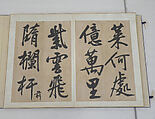 萊何處
億萬里
紫雲飛
隨欄杆